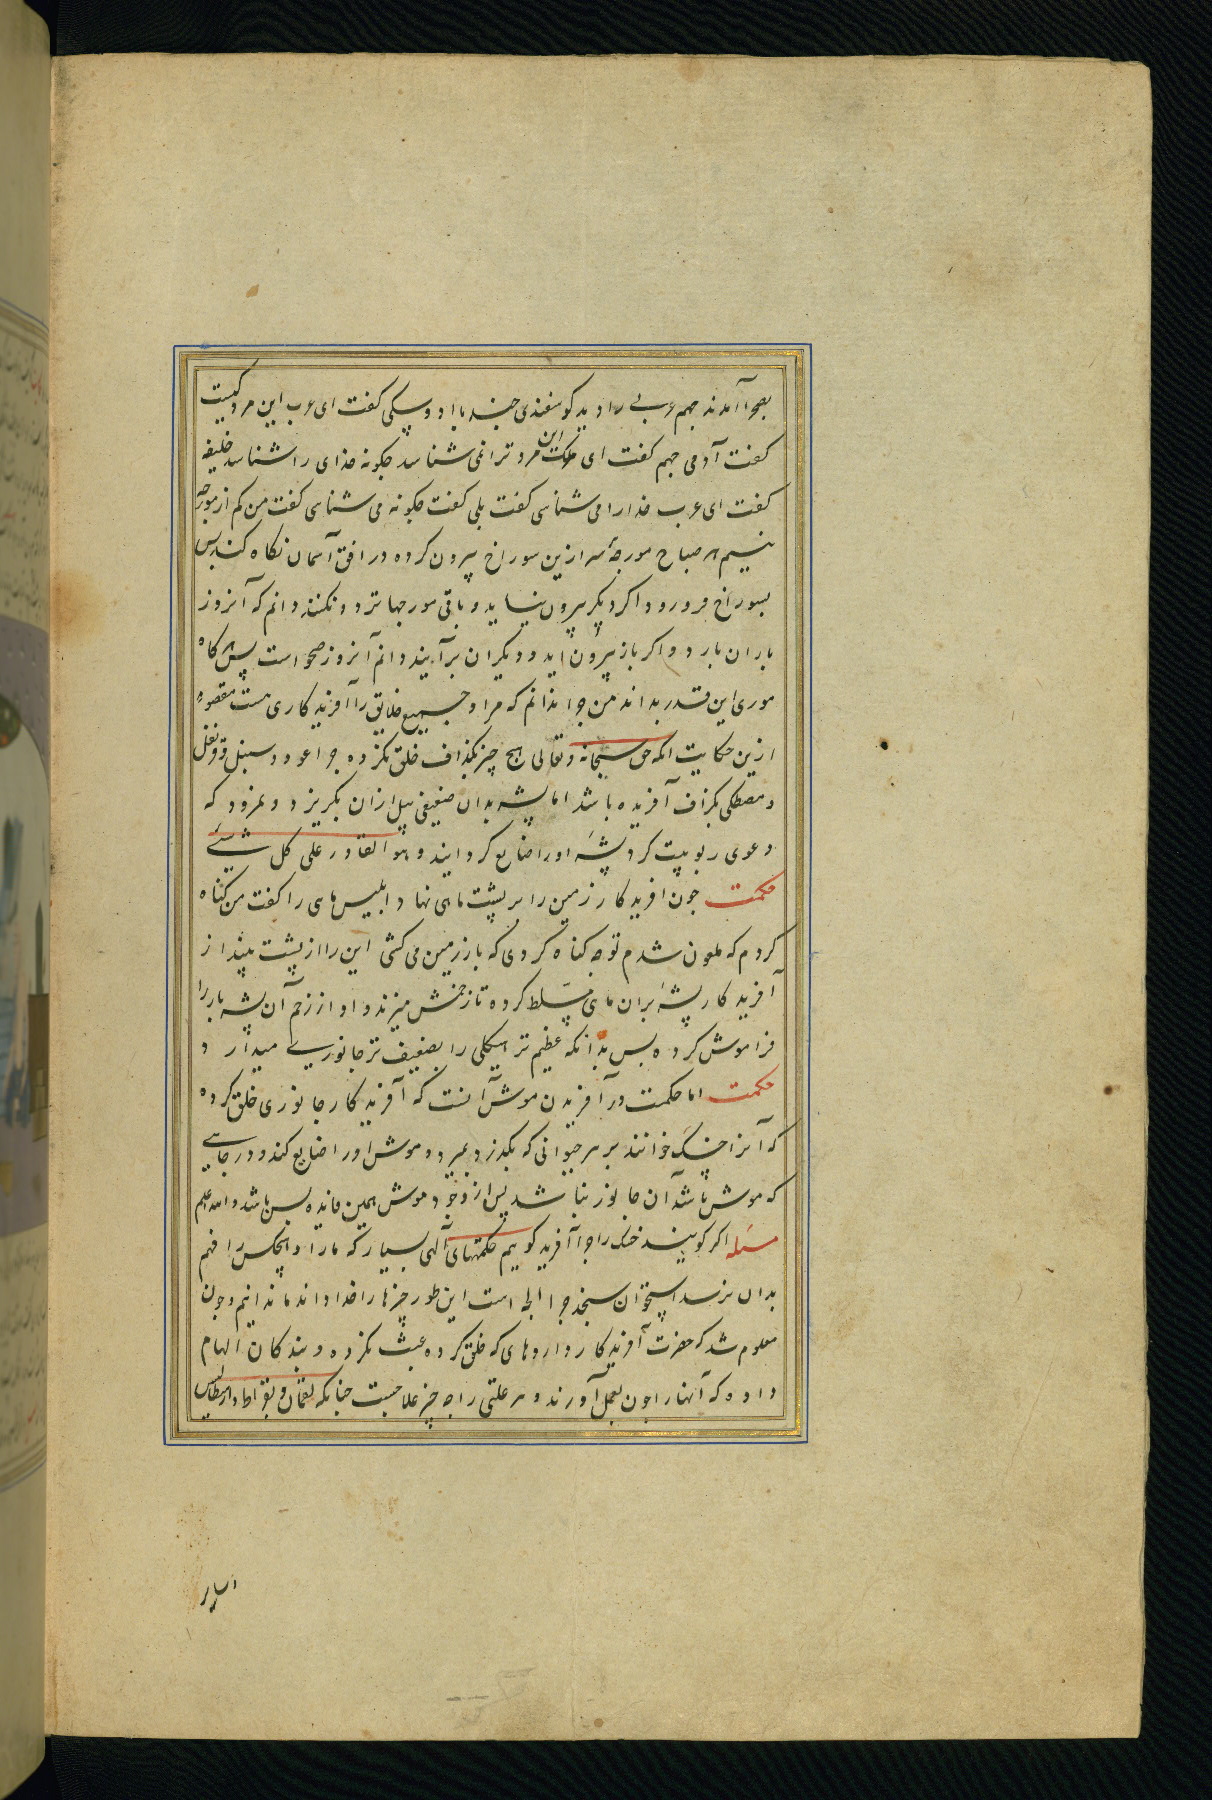 بصحرا آمدند جهم عربی را دید گوسفندی چند با او و سکی کفت ای عرب این مرد کیست
کفت آدمی جهم کفت ای ملک این مرد ترا نمی شناسد چکونه خدای را شناسد خلیفه
کفت ای عرب خدا را می شناسی کفت بلی کفت چکونه می شناسی کفت من کم از مورچه
نیستم هر صباح مورچهٔ سر ازین سوراخ بیرون کرده در افق آسمان نکاه کند پس
بسوراخ فرو رود اکر دیکر بیرون نیاید و باقی مورجها تردد نکنند دانم که آنروز
باران بارد و اکر باز بیرون اید و دیکران برآیند دانم آنروز صحو است پس هرکاه
موری این قدر بداند من چرا ندانم که مرا و جمیع خلایق را آفریدکاری هست مقصود
ازین حکایت انکه حق سبحانه و تعالی هیچ چیز بکذاف خلق نکرده چرا عود و سنبل و قرنفل
و مصطکی بکزاف آفریده باشد اما پشه بدان ضعیفی پیل ازان بکریزد و نمرود که
دعوی ربوبیت کرد پشه او را ضایع کردانید و هو القادر علی کل شیئ
حکمت جون افریدکار زمین را بر پشت ماهی نهاد ابلیس ماهی را کفت من کناه
کردم که ملعون شدم تو چه کناه کردی که بار زمین می کشی این را از پشت بینداز
آفریدکار پشه بران ماهی مسلط کرده تا زخمش میزند و او از زخم آن پشه بار را
فراموش کرده پس بدانکه عظیم تر هیکلی را بضعیف تر جانوری میدارد
حکمت اما حکمت در آفریدن موش آنست که آفریدکار جانوری خلق کرده
که آنرا خوانند بر هر حیوانی که بکذرد بمیرد و موش او را ضایع کند و در جایی
که موش باشد آن جانور نباشد پس از وجود موش همین فایده بس باشد والله اعلم
مسئله اکر کویند را چرا آفرید کویم حکمتهای آلهی بسیار که ما را و هیچکس را فهم
بدان نرسد استخوان چرا است این طور چیزها را خدا داند ما ندانیم و چون
معلوم شد که حضرت آفریدکار داروهای که خلق کرده عبث نکرده و بندکان الهام
داده که آنها را چون بعمل آورند و هر علتی را چه چیز علاجست چنانکه لقمان و بقراط و ارسطالیس